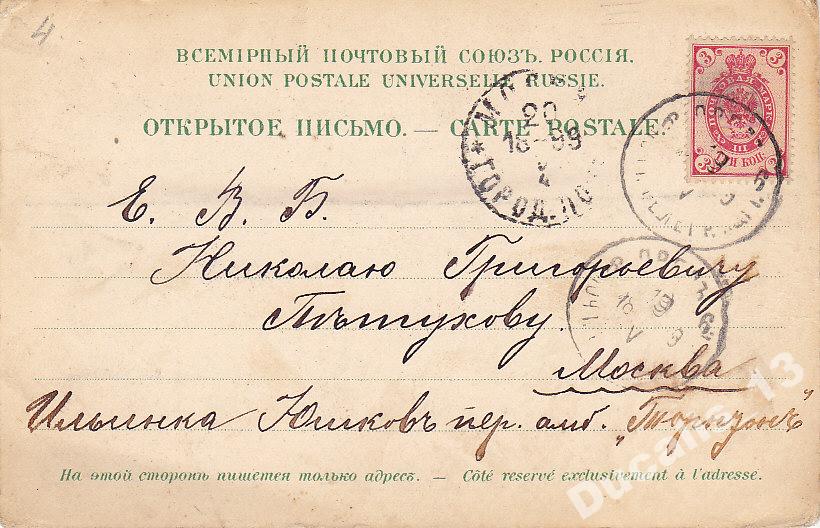 4
ВСЕМІРНЫЙ ПОЧТОВЫЙ СОЮЗЪ. РОССІЯ.
UNION POSTALE UNIVERSELLE RUSSIE.
ОТКРЫТОЕ ПИСЬМО. — CARTE POSTALE.
3 3
ПОЧТОВАЯ МАРКА
III
3 3
ТРИ КОП.
20
18 99
4
ГОРОД. ПО
Е. В. Б.
Николаю Григорьевичу
Пѣтухову.
Москва
Ильинка Юшковъ пер. амб.
На этой сторонѣ пишется только адресъ. — Côté reservé exclusivement à l'adresse.
Ducalla-13